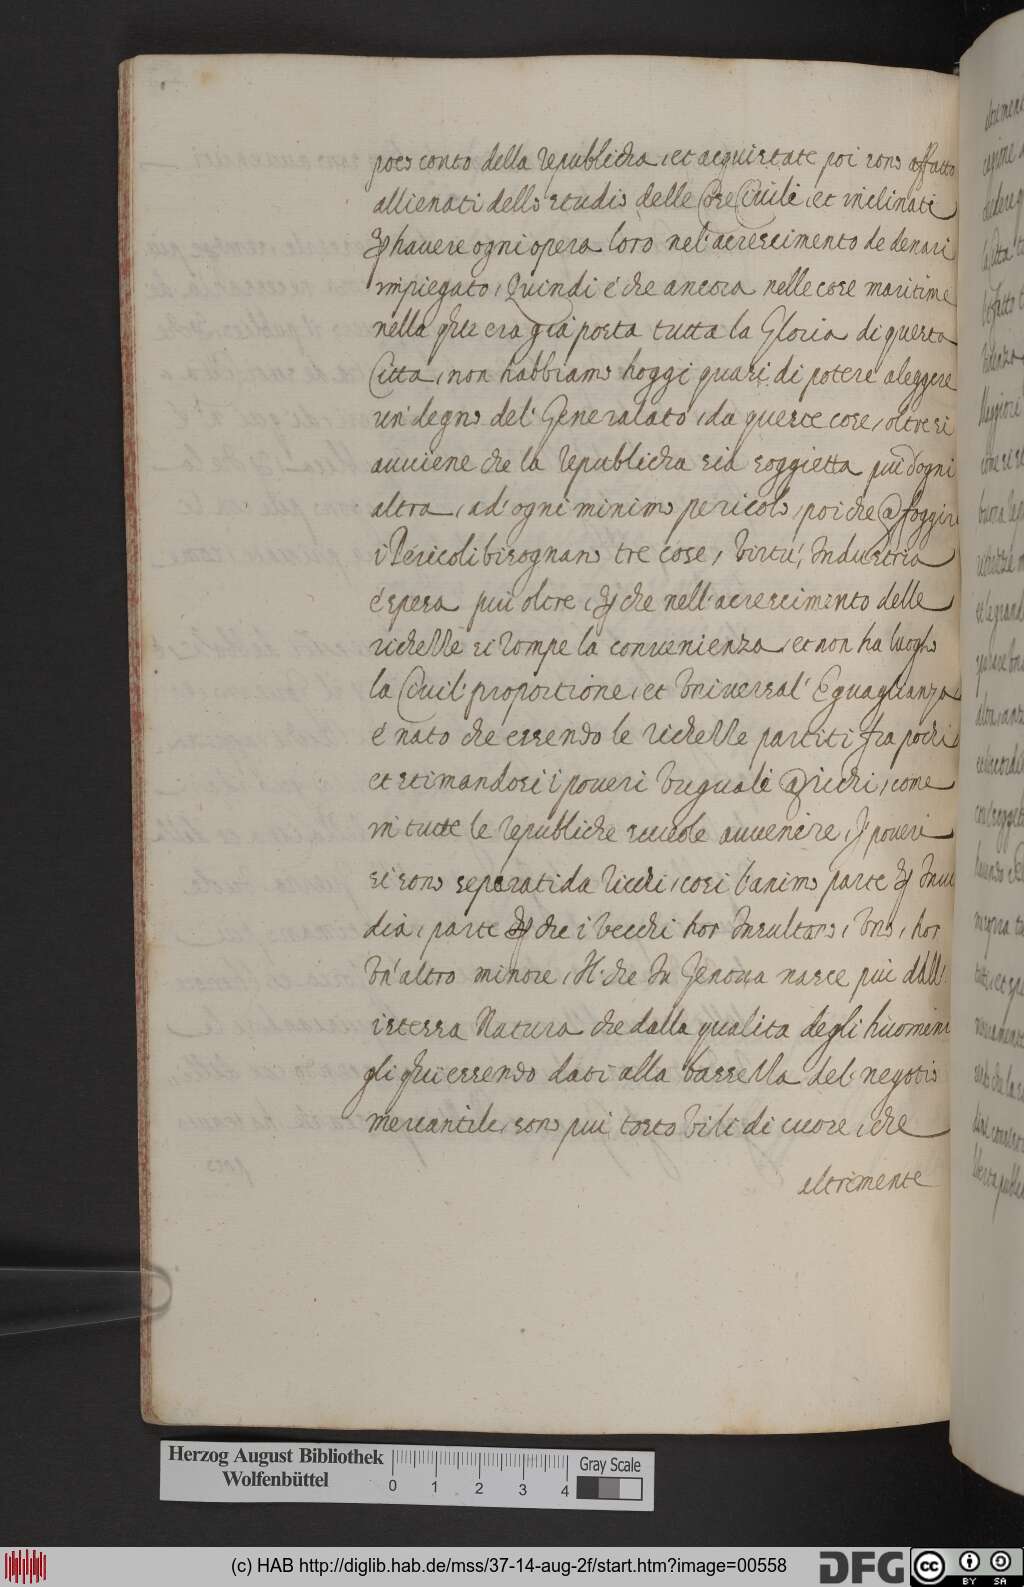 poco conto della republicha, et acquistate poi sono affatto
allienati dello studio delle Cose Civili, et inclinati
havere ogni opera loro nel' acrescimento de denari
impiegato, Quindi é che ancora nelle cose maritime
nella era già posta tutta la Gloria di questa
Citta, non habbiamo hoggi quasi di potere aleggere
un' degno del' Generalato, da queste cose, oltre si
auuiene che la republicha sia soggietta piu d'ogni
altra, ad' ogni minimo pericolo, poi che a foggire
i Pericoli bisognano tre cose, Virtú, Industria
é spesa piu oltre, che nell' acrescimento delle
richesse si rompe la convenienza, et non ha luogho
la Civil' proportione, et Universal' Eguaglianza
é nato che essendo le richesse partiti fra pochi
et stimandosi i poueri Vuguali a richi, come
in tutte le republiche suole auuenire, i poueri
si sono separati da Ricchi, cosi l'animo parte Inui
dia, parte che i Vecchi hor Insultano, Uno, hor
Un' altro minore, Il che In Genoua nasce piu dall'
istessa Natura che dalla qualita degli huomini
gli essendo dati alla bassessa del' negotio
mercantile, sono piu tosto Vili di cuore, che
altrimente
Herzog August Bibliothek
Wolfenbüttel
0 1 2 3 4
Gray Scale
(c) HAB http://diglib.hab.de/mss/37-14-aug-2f/start.htm?image=00558
DFG
cc BY SA